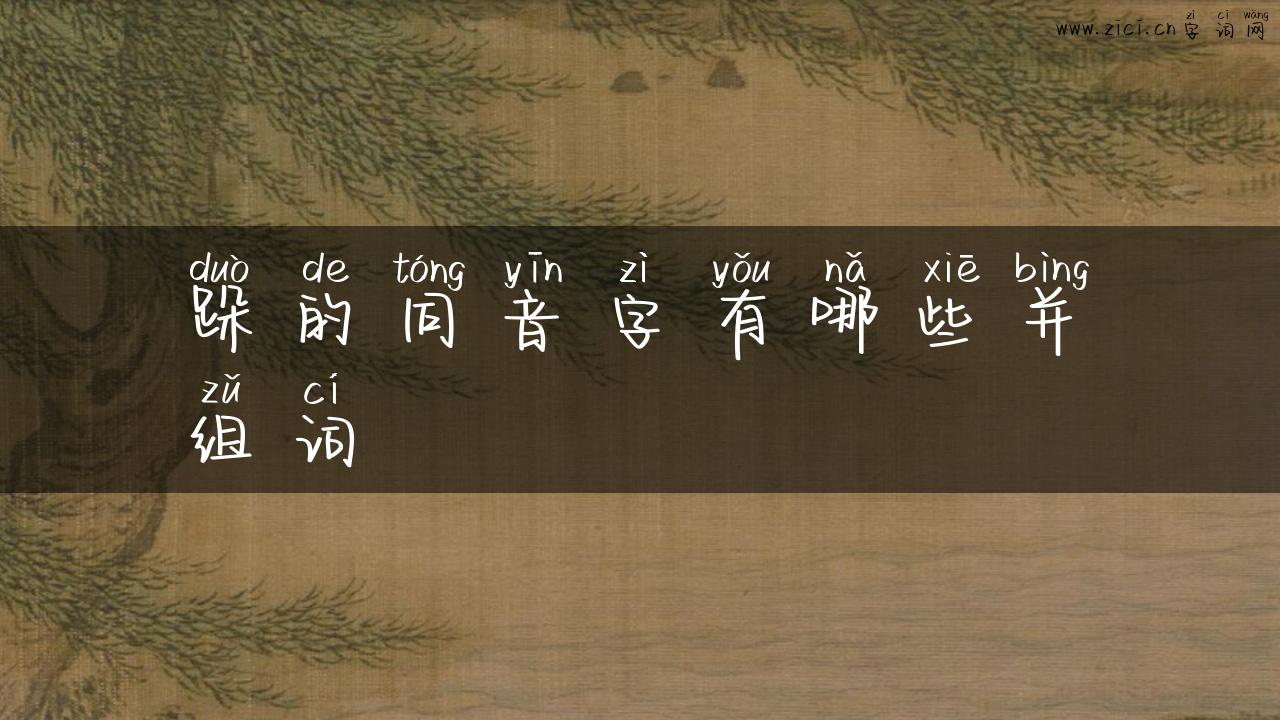 zì cí wǎng
www.zici.cn 字词网
duò de tóng yīn zì yǒu nǎ xiē bìng
跺的同音字有哪些并
zǔ cí
组词